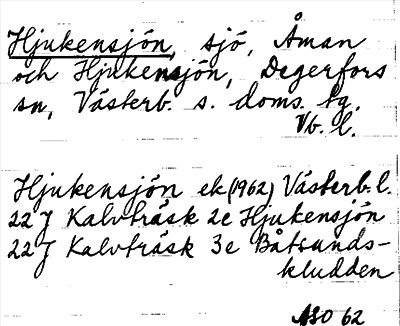 Hjukensjön, sjö, Åman
och Hjukensjön, Degerfors
sn, Västerb. s. doms. tg.
Vb. l.
Hjukensjön ek (1962) Västerb. l.
22 J Kalvträsk 2e Hjukensjön
22 J Kalvträsk 3e Båtsunds-
kludden
ASO 62